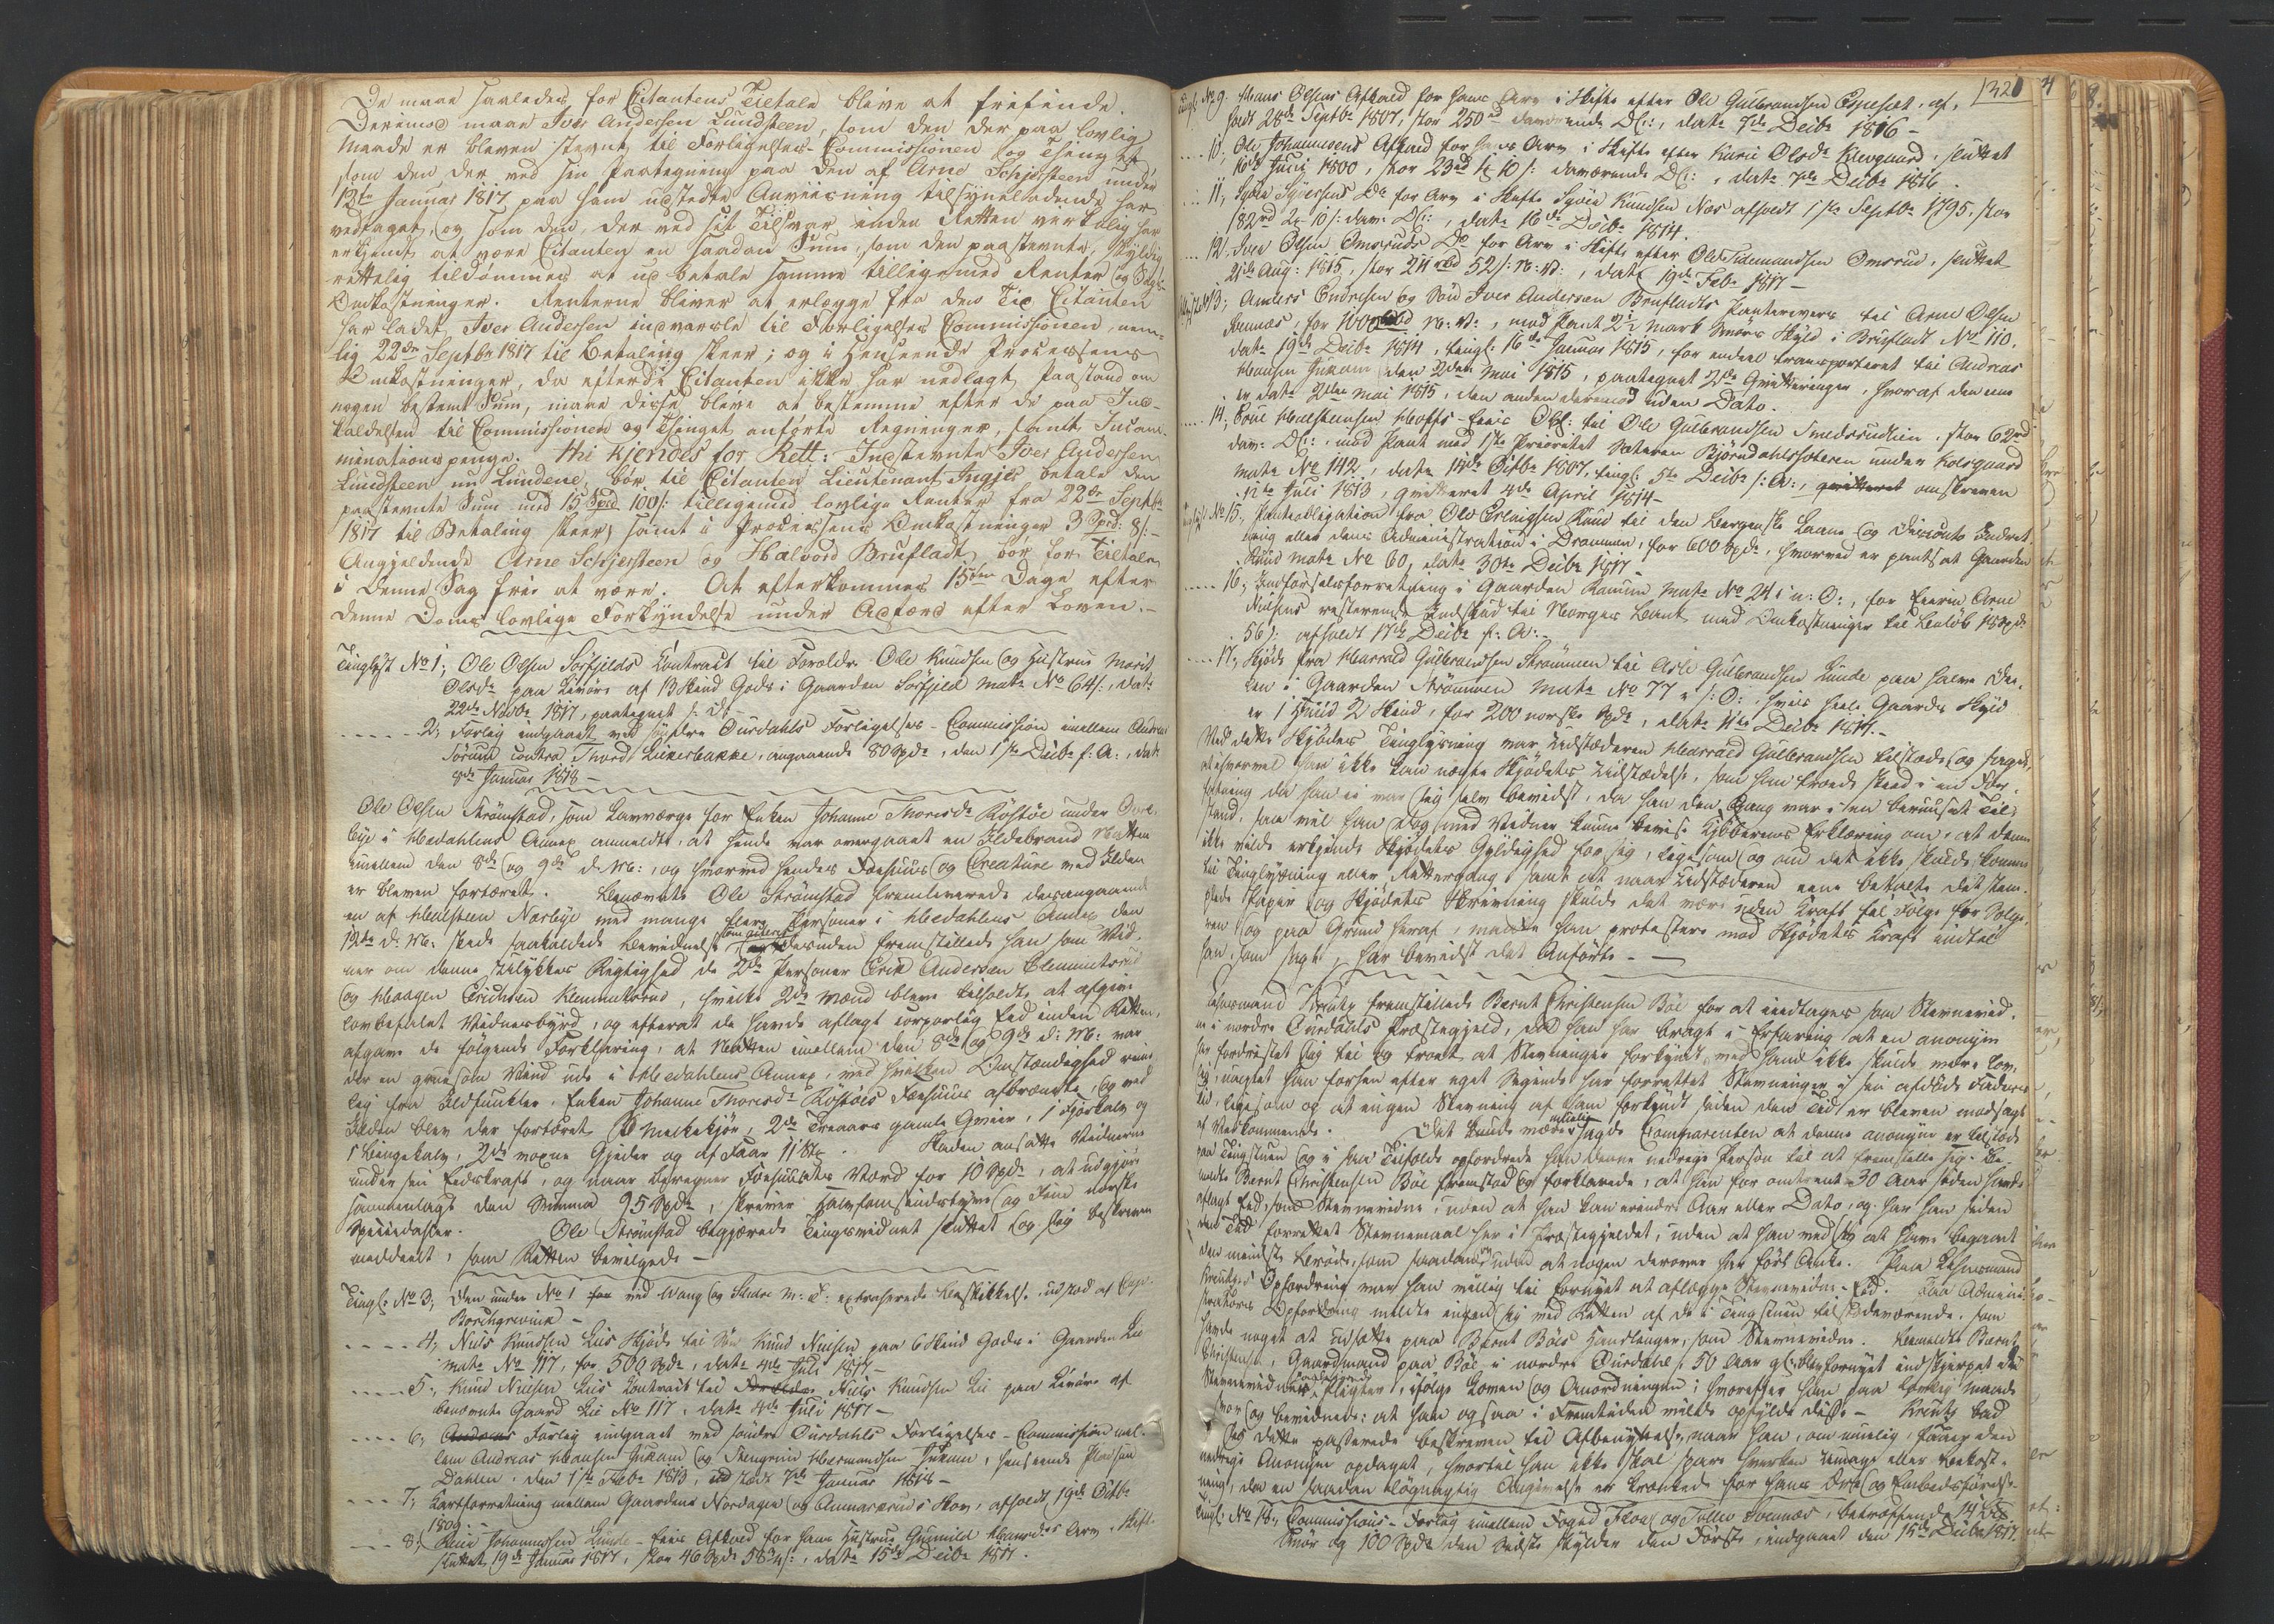 De maae saaledes for Citantens Tiltale blive at frifinde.
Derimod maae Iver Andersen Lundsteen, som den der paa lovlig
Maade er bleven stevnt til Forligelses-Commissionen og Thinget,
som den der ved sin Paategning paa den af Arne Schjersteen under
13te Januar 1817 paa ham udstedte Anviisning tilsyneladende har
vedtaget, og som den, der ved sit Tilsvar inden Retten verkelig har
erkjendt at være Citanten en saadan Sum, som den paastevnte, skyldig
rettelig tildømmes at udbetale samme tilligemed Renter og Sags
Omkostninger. Renterne bliver at erlægge fra den Tid Citanten
har ladet Iver Andersen indvarsle til Forligelses Commissionen, nem-
lig 22de Septbr 1817 til Betaling skeer; og i Henseende Processens
Omkostninger, da efterdi Citanten ikke har nedlagt Paastand om
nogen bestemt Sum, maae disse blive at bestemme efter de paa Ind-
kaldelsen til Commissionen og Thinget anførte Regninger, samt Incam-
minationspenge. Thi kjendes for Rett: Indstevnte Iver Andersen
Lundsteen nu Lundene, bør til Citanten Lieutenant Ingjer betale den
paastevnte Sum med 15 Spd 100 s: tilligemed lovlige Renter fra 22de Septbr
1817 til Betaling skeer, samt i Processens Omkostninger 3 Spd: 8 s:-
Angjeldende Arne Schjersteen og Halvord Brufladt bør for Tiltale
i denne Sag frie at være. At efterkommes 15ten Dage efter
denne Doms lovlige Forkyndelse under Adfærd efter Loven.-
Tinglyst No 1; Ole Olsen Sørfjelds Contract til Forældre Ole Knudsen og Hustrue Marit
Olsdr paa Livøre af 13 Skind Gods i Gaarden Sørfjeld Matr No 64 s:, datr
22de Novbr 1817, paategnet
2, Forlig indgaaet ved søndre Ourdahls Forligelses-Commission imellem Andreas
contra Thord Lukesbakke, angaaende 80 Spdr, den 1ste Decbr f: A:, datr
8de Januar 1818-
Ole Olsen Strømstad, som Lavværge for Enken Johanne Thoresdr Røstøe under
bye i Hedahlens Annex anmeldte, at hende var overgaaet en Ildebrand Natten
imellem den 8de og 9de d: M:, og hvorved hendes Fæehuus og Creature ved Ilden
er bleven fortæret. Benævnte Ole Strømstad fremleverede desangaaende
en af Halsteen Nørbye med mange flere Personer i Hedahlens Annex den
12te d: M: skeede saakaldede Bevidnelse desuden fremstillede han som Vid-
ner om denne Ulykkes Rigtighed de 2de Personer Erik Andersen Clemmetsrud
og Haagen Erichsen Klemmetsrud, hvilke 2de Mænd bleve tilholdte at afgive
lovbefalet Vidnesbyrd, og efterat de havde aflagt corporlig Eed inden Retten,
afgave de følgende Forklaring, at Natten imellem den 8de og 9de d: M: var
der en gruesom Vind ude i Hedahlens Annex, ved hvilken Omstændighed
lig fra Ildfunkter, Enken Johanne Thoresdr Røstøes Fæehuus afbrændte, og ved
Ilden blev der fortæret Melkekjør, 2de Treaars gamle Qvier, 1 Fjorkalv og
1 Lingekalv, 2de voxne Gjeder og af Faar 11 Stk. Skaden ansatte Vidnerne
under sin Eedskraft, og naar beregner Fæehuusets Værd for 10 Spdr, at udgjøre
sammenlagt den Summa 95 Spdr, skriver Halvfemsindstyve og Fem norske
Speciedaler. Ole Strømstad begjærede Tingsvidnet sluttet og sig beskreven
meddeelt, som Retten bevilgede-
Tingl: No 3; Den under No 1 ved Wang og Slidre M: T: extraherede Beskikkelse udstæd af Cap:
Borchgrevink -
4, Niels Knudsen Lies Skjøde til Søn Knud Nielsen paa 6 Skind Gods i Gaarden Lie
Matr No 117, for 500 Spdr, datr 4de Juli 1817-
5, Knud Nielsen Lies Contract til Niels Knudsen Lie paa Livøre af
benævnte Gaard Lie No 117, datr 4de Juli 1817-
6, Forlig indgaaet ved søndre Ourdahls Forligelses-Commission mel-
lem Andreas Hansen Jukam og Steengrim Hermandsen Jukam, henseende Pladsen
Dahlen, den 1ste Febr 1813, udstædt 7de Januar 1818-
7, Kartforretning mellem Gaardene Nordagen og Aanærerud i Hov, afholdt 19de Octbr
1809.-
8, Johannesen Lunde-Eies Afkald for hans Hustrue Gunnild Haavrdsdrs Arv. Skift.
sluttet 19de Januar 1817, stor 46 Spdr 58 3/4 s:, datr 15de Decbr 1817.
1320
Tingl: No 9. Hans Olsens Afkald for hans Arv i Skifte efter Ole Gulbrandsen Espeset, af-
holdt 28de Septbr 1807, stor 250 rd daværende D:C:, datr 7de Decbr 1816-
10, Ole Johannesens Afkald for hans Arv i Skifte efter Karie Olsdr Klevgaard, sluttet
16de Junij 1800, stor 23 rd 10 s: daværende D:C:, datr 7de Decbr 1816.
11, Do for Arv i Skifte Knudsen Næs afholdt 1ste Septbr 1795, stor
182 rd 2 10 s: dav: D:C:, datr 16de Decbr 1814.
12, Iver Olsen Omsruds Do for Arv i Skifte efter Ole Tidemandsen Omsrud, sluttet
21de Aug: 1815, stor 211 rbd 52 s: N: V:, datr 19de Febr 1817-
13; Anders Endresen og Søn Iver Andersen Brufladts Panterevers til Arne Olsen
for 1000 N: V:, mod Pant 2 1/2 Mark Smørs Skyld i Brufladt No 110,
datr 19de Decbr 1814, tingl: 16de Januar 1815, for endeel transporteret til Andreas
Hansen Jukam den 2den Mai 1815, paategnet 2de Qvitteringer, hvoraf den ene
er datr 2den Mai 1815, den anden derimod uden Dato.
14; Halstensen Hoffs-Eies Obl: til Ole Gulbrandsen Smedsrudeien, stor 62 rd
dav: D:C:, mod Pant med 1ste Prioritet Sæteren Bjørndahlssæteren under Kolsgaard
Matr No 142, datr 14de Octbr 1807, tingl: 5te Decbr s: A:, omskreven
12te Juli 1813, qvitteret 4de April 1814-
No 15, Panteobligation fra Ole Erlingsen Ruud til den Bergenske Laane og Disconto Indret-
ning eller dens Administration i Drammen, for 600 Spdr, hvorved er pantsat Gaarden
Ruud Matr No 60, datr 30te Decbr 1817-
16, Indførselsforretning i Gaarden Matr No 24 i n: O:, for Arne
Nielsens resterende Indskud til Norges Bank med Omkostninger til Beløb 18 Spdr
56 s: afholdt 17de Decbr f: A:-
17, Skjøde fra Harald Gulbrandsen Strømmen til Arle Gulbrandsen Lunde paa halve De-
len i Gaarden Strømmen Matr No 77 s: O:, hvis heele Gaards Skyld
er 1 Huud 2 Skind, for 200 norske Spdr, datr 11te Decbr 1817.-
Ved dette Skjødes Tinglysning var Udstæderen Harald Gulbrandsen tilstæde og sagde,
at omendskjøndt han ikke kan negte Skjødets Udstædelse, som han troede skeed i en
da han ei var sig selv bevidst, da han den Gang var i en beruuset Til-
stand, saa vil han dog med Vidner kunne bevise Kjøberens Erklæring om, at denne
ikke vilde erkjende Skjødets Gyldighed for sig, ligesom og om det ikke skulde komme
til Tinglysning eller Rettergang, samt at naar Udstæderen ene betalte det stem-
plede Papir og Skjødets Skrivning skulde det være uden Kraft til Følge for Sælge-
ren og paa Grund heraf, maatte han protestere mod Skjødets Kraft indtil
han, som sagt, har beviist det Anførte.-
Lehnsmand Kreutz fremstillede Bernt Christensen Bøe for at indtages som Stevnevid-
ne i nordre Ourdahls Præstegjeld, da han har bragt i Erfaring at en anonym
har fordristet sig til og troet at Stevninger forkyndt ved ham ikke skulde være lov-
lig, uagtet han forhen efter eget Sigende har forrettet Stevninger i sin afdøde Faders
Tid, ligesom og at ingen Stevning af ham forkyndt siden den Tid er bleven modsagt
af Vedkommende. Det kunde være sagde Comparenten at denne anonym er tilstæde
paa Tingstuen og i saa Tilfælde opfordrede han denne nedrige Person til at fremstille sig. Be-
meldte Bernt Christensen Bøe fremstod og forklarede, at han for omtrent 30 Aar siden havde
aflagt Eed, som Stevnevidne, uden at han kan erindre Aar eller Dato, og har han siden
den Tid forrettet Stevnemaal her i Præstegjeldet, uden at han ved sig at have begaaet
den mindste Brøde, som saadan, uden at nogen derover har ført Anke. Paa Lehnsmand
Kreutzes Opfordring var han villig til fornyet at aflægge Stevnevidne-Eed. Paa Admini-
strators Opfordring meldte ingen sig ved Retten af de i Tingstuen tilstedeværende, som
havde noget at udsætte paa Bernt Bøes Handlinger, som Stevnevidne. Bemeldte Bernt
Christensen, Gaardmand paa Bøe i nordre Ourdahl, 50 Aar gl: blev fornyet indskjærpet et
Stevnevidnes Pligter, ifølge Loven og Anordningen; hvorefter han paa lovlig Maade
svor og bevidnede: at han ogsaa i Fremtiden vilde opfylde disse.- Kreutz bad
sig dette passerede beskreven til Afbenyttelse, naar han, om muelig, faaer den
nedrige Anonym opdaget, hvortil han ikke skal spare hverken Umage eller Bekost-
ning, da en saadan løgnagtig Angivelse er krænkende for hans Ære og Embedsførelse.
Tingl: No 18, Commissions-Forlig imellem Foged og Tollev betræffende 14
Smør og 100 Spdr den Sidste skylder den Første, indgaaet den 15de Decbr 1817.